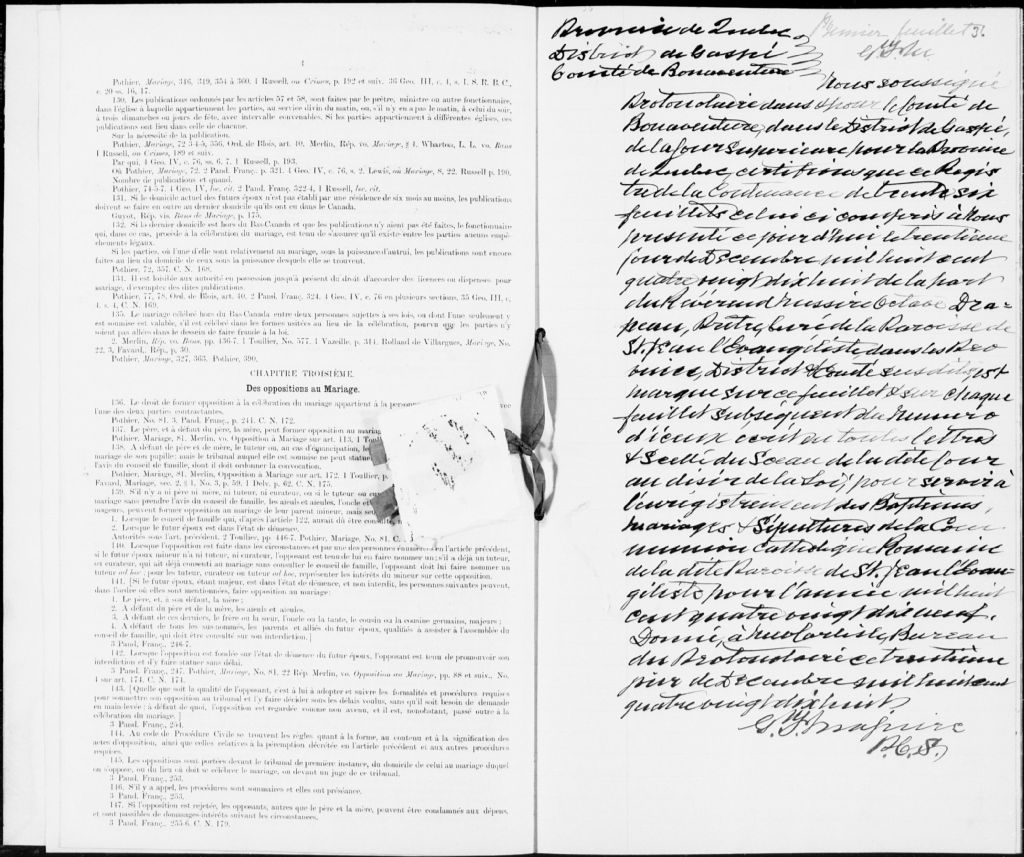 4
Pothier, Mariage, 346, 349, 354 à 360. 1 Russell, on Crimes, p. 192 et suiv. 36 Geo. III, c. 4, s. 4. S. R. B. C.,
c. 20 ss. 16, 17.
130. Les publications ordonnés par les articles 57 et 58, sont faites par le prêtre, ministre ou autre fonctionnaire,
dans l'église à laquelle appartiennent les parties, au service divin du matin, ou, s'il n'y en a pas le matin, à celui du soir,
à trois dimanches ou jours de fête, avec intervalle convenables. Si les parties appartiennent à différentes églises, ces
publications ont lieu dans celle de chacune.
Sur la nécessité de la publication.
Pothier, Mariage, 72 3-4-5, 356. Ord. de Blois, art. 40. Merlin, Rép. vo. Mariage, § 4. Wharton, L. L. vo. Bans
1 Russell, on Crimes, 189 et suiv.
Par qui. 4 Geo. IV, c. 76, ss. 6, 7. 1 Russell, p. 193.
Où Pothier, Mariage, 72. 2 Pand. Franç. p. 321. 4 Geo. IV, c. 76, s. 2. Lewis, on Mariage, 8, 22. Russell p. 190.
Nombre de publications et quand.
Pothier, 74-5-7. 4 Geo. IV, loc. cit. 2 Pand. Franç. 322-4, 1 Russell, loc. cit.
131. Si le domicile actuel des futurs époux n'est pas établi par une résidence de six mois au moins, les publications
doivent se faire en outre au dernier domicile qu'ils ont eu dans le Canada.
Guyot, Rép. vis. Bans de Mariage, p. 175.
132. Si le dernier domicile est hors du Bas-Canada et que les publications n'y aient pas été faites, le fonctionnaire
qui, dans ce cas, procède à la célébration du mariage, est tenu de s'assurer qu'il n'existe entre les parties aucuns empê-
chements légaux.
Si les parties, où l'une d'elle sont relativement au mariage, sous la puissance d'autrui, les publications sont encore
faites au lieu du domicile de ceux sous la puissance desquels elle se trouvent.
Pothier, 72, 357. C. N. 168.
134. Il est loisible aux autorité en possession jusqu'à présent du droit d'accorder des licences ou dispenses pour
mariage, d'exempter des dites publications.
Pothier, 77, 78. Ord. de Blois, art. 40. 2 Pand. Franç. 324. 4 Geo. IV, c. 76 en plusieurs sections, 35 Geo. III, c.
4, s. 4. C. N. 169.
135. Le mariage célébré hors du Bas-Canada entre deux personnes sujettes à ses lois, ou dont l'une seulement y
est soumise est valable, s'il est célébré dans les formes usitées au lieu de la célébration, pourvu que les parties n'y
soient pas allées dans le dessein de faire fraude à la loi.
2. Merlin, Rép. vo. Bans, pp. 436-7. 1 Toullier, No. 577. 1 Vazeille, p. 314. Rolland de Villargues, Mariage, No.
22, 3. Favard, Rép., p. 30.
Pothier, Mariage, 327, 363. Pothier, 390.
CHAPITRE TROISIÈME.
Des oppositions au Mariage.
136. Le droit de former opposition à la célébration du mariage appartient à la personne avec
l'une des deux parties contractantes.
Pothier, No. 81. 3. Pand. Franç., p. 244. C. N. 172.
137. Le père, et à défaut du père, la mère, peut former opposition au mariage
Pothier, Mariage, 81. Merlin, vo. Opposition à Mariage sur art. 113, 1 Toul
138. A défaut de père et de mère, le tuteur ou, au cas d'émancipation, le
mariage de son pupille; mais le tribunal auquel elle est soumise ne peut statuer
l'avis du conseil de famille, dont il doit ordonner la convocation.
Pothier, Mariage, 81. Merlin, Opposition à Mariage sur art. 172. 1 Toullier, p.
Favard, Mariage, sec. 2, § 1, No. 3, p. 59. 1 Delv. p. 62. C. N. 175.
139. S'il n'y a ni père ni mère, ni tuteur, ni curateur, ou si le tuteur ou cu
mariage sans prendre l'avis du conseil de famille, les aïeuls et aïeules, l'oncle et
majeurs, peuvent former opposition au mariage de leur parent mineur, mais se
1. Lorsque le conseil de famille qui, d'après l'article 122, aurait dû être consulté,
2. Lorsque le futur époux est dans l'état de démence.
Autorités sous l'art. précédent. 2 Toullier, pp. 446-7. Pothier, Mariage, No. 81. C.
140. Lorsque l'opposition est faite dans les circonstances et par une des personnes énumérées en l'article précédent,
si le futur époux mineur n'a ni tuteur, ni curateur, l'opposant est tenu de lui en faire nommer un; s'il a déjà un tuteur,
ou curateur, qui ait déjà consenti au mariage sans consulter le conseil de famille, l'opposant doit lui faire nommer un
tuteur ad hoc; pour les tuteur, curateur ou tuteur ad hoc, représenter les intérêts du mineur sur cette opposition.
141. [Si le futur époux, étant majeur, est dans l'état de démence, et non interdit, les personnes suivantes peuvent,
dans l'ordre où elles sont mentionnées, faire opposition au mariage:
1. Le père, et, à son défaut, la mère;
2. A défaut du père et de la mère, les aïeuls et aïeules.
3. A défaut de ces derniers, le frère ou la sœur, l'oncle ou la tante, le cousin ou la cousine germains, majeurs;
4. A défaut de tous les sus-nommés, les parents et alliés du futur époux, qualifiés à assister à l'assemblée du
conseil de famille, qui doit être consulté sur son interdiction.]
3 Pand. Franç., 246-7.
142. Lorsque l'opposition est fondée sur l'état de démence du futur époux, l'opposant est tenu de promouvoir son
interdiction et d'y faire statuer sans délai.
3 Pand. Franç., 247. Pothier, Mariage, No. 81. 22 Rép. Merlin, vo. Opposition au Mariage, pp. 88 et suiv., No.
4 sur art. 174. C. N. 174.
143. [Quelque soit la qualité de l'opposant, c'est à lui à adopter et suivre les formalités et procédures requises
pour soumettre son opposition au tribunal et l'y faire décider sous les délais voulus, sans qu'il soit besoin de demande
en main-levée; à défaut de quoi, l'opposition est regardée comme non avenu, et il est, nonobstant, passé outre à la
célébration du mariage.]
3 Pand. Franç., 254.
144. Au code de Procédure Civile se trouvent les règles quant à la forme, au contenu et à la signification des
actes d'opposition, ainsi que celles relatives à la péremption décrétée en l'article précédent et aux autres procédures
requises.
145. Les oppositions sont portées devant le tribunal de première instance, du domicile de celui au mariage duquel
on s'oppose, ou du lieu où doit se célébrer le mariage, ou devant un juge de ce tribunal.
3 Pand. Franç., 253.
146. S'il y a appel, les procédures sont sommaires et elles ont préséance.
3 Pand. Franç., 253.
147. Si l'opposition est rejetée, les opposants, autres que le père et la mère, peuvent être condamnés aux dépens,
et sont passibles de dommages-intérêts suivant les circonstances.
3 Pand. Franç., 255-6. C. N. 179.
Province de Quebec
District de Gaspé
Comté de Bonaventure
Premier feuillet 36
Nous soussigné
Protonotaire dans & pour le Comté de
Bonaventure, dans le District de Gaspé,
de la Cour Superieure pour la Province
de Quebec, certifions que ce Regis
tre de la Contenance de trente six
feuillets celui ci compris à Nous
presenté ce jour d'hui le trentieme
jour de Decembre mil huit cent
quatre vingt dix huit de la part
du Révérend Messire Octave Dra-
peau, Ptre, Curé de la Paroisse de
St. Jean l'Évangéliste dans les Pro
vince, District & Comté susdits, est
marque sur ce feuillet & sur chaque
feuillet subséquent du numero
d'iceux écrit en toutes lettres
& Scellé du Sceau de la dite Cour
au désir de la Loi, pour servir à
l'enregistrement des Baptêmes,
mariages & Sépultures de la Com
munion Catholique Romaine
de la dite Paroisse de St. Jean l'Evan-
géliste pour l'année mil huit
cent quatre vingt dix neuf.
Donné, à New Carlisle, Bureau
du Protonotaire ce trentième
jour de Decembre mil huit cent
quatre vingt dix huit
P.C.S.